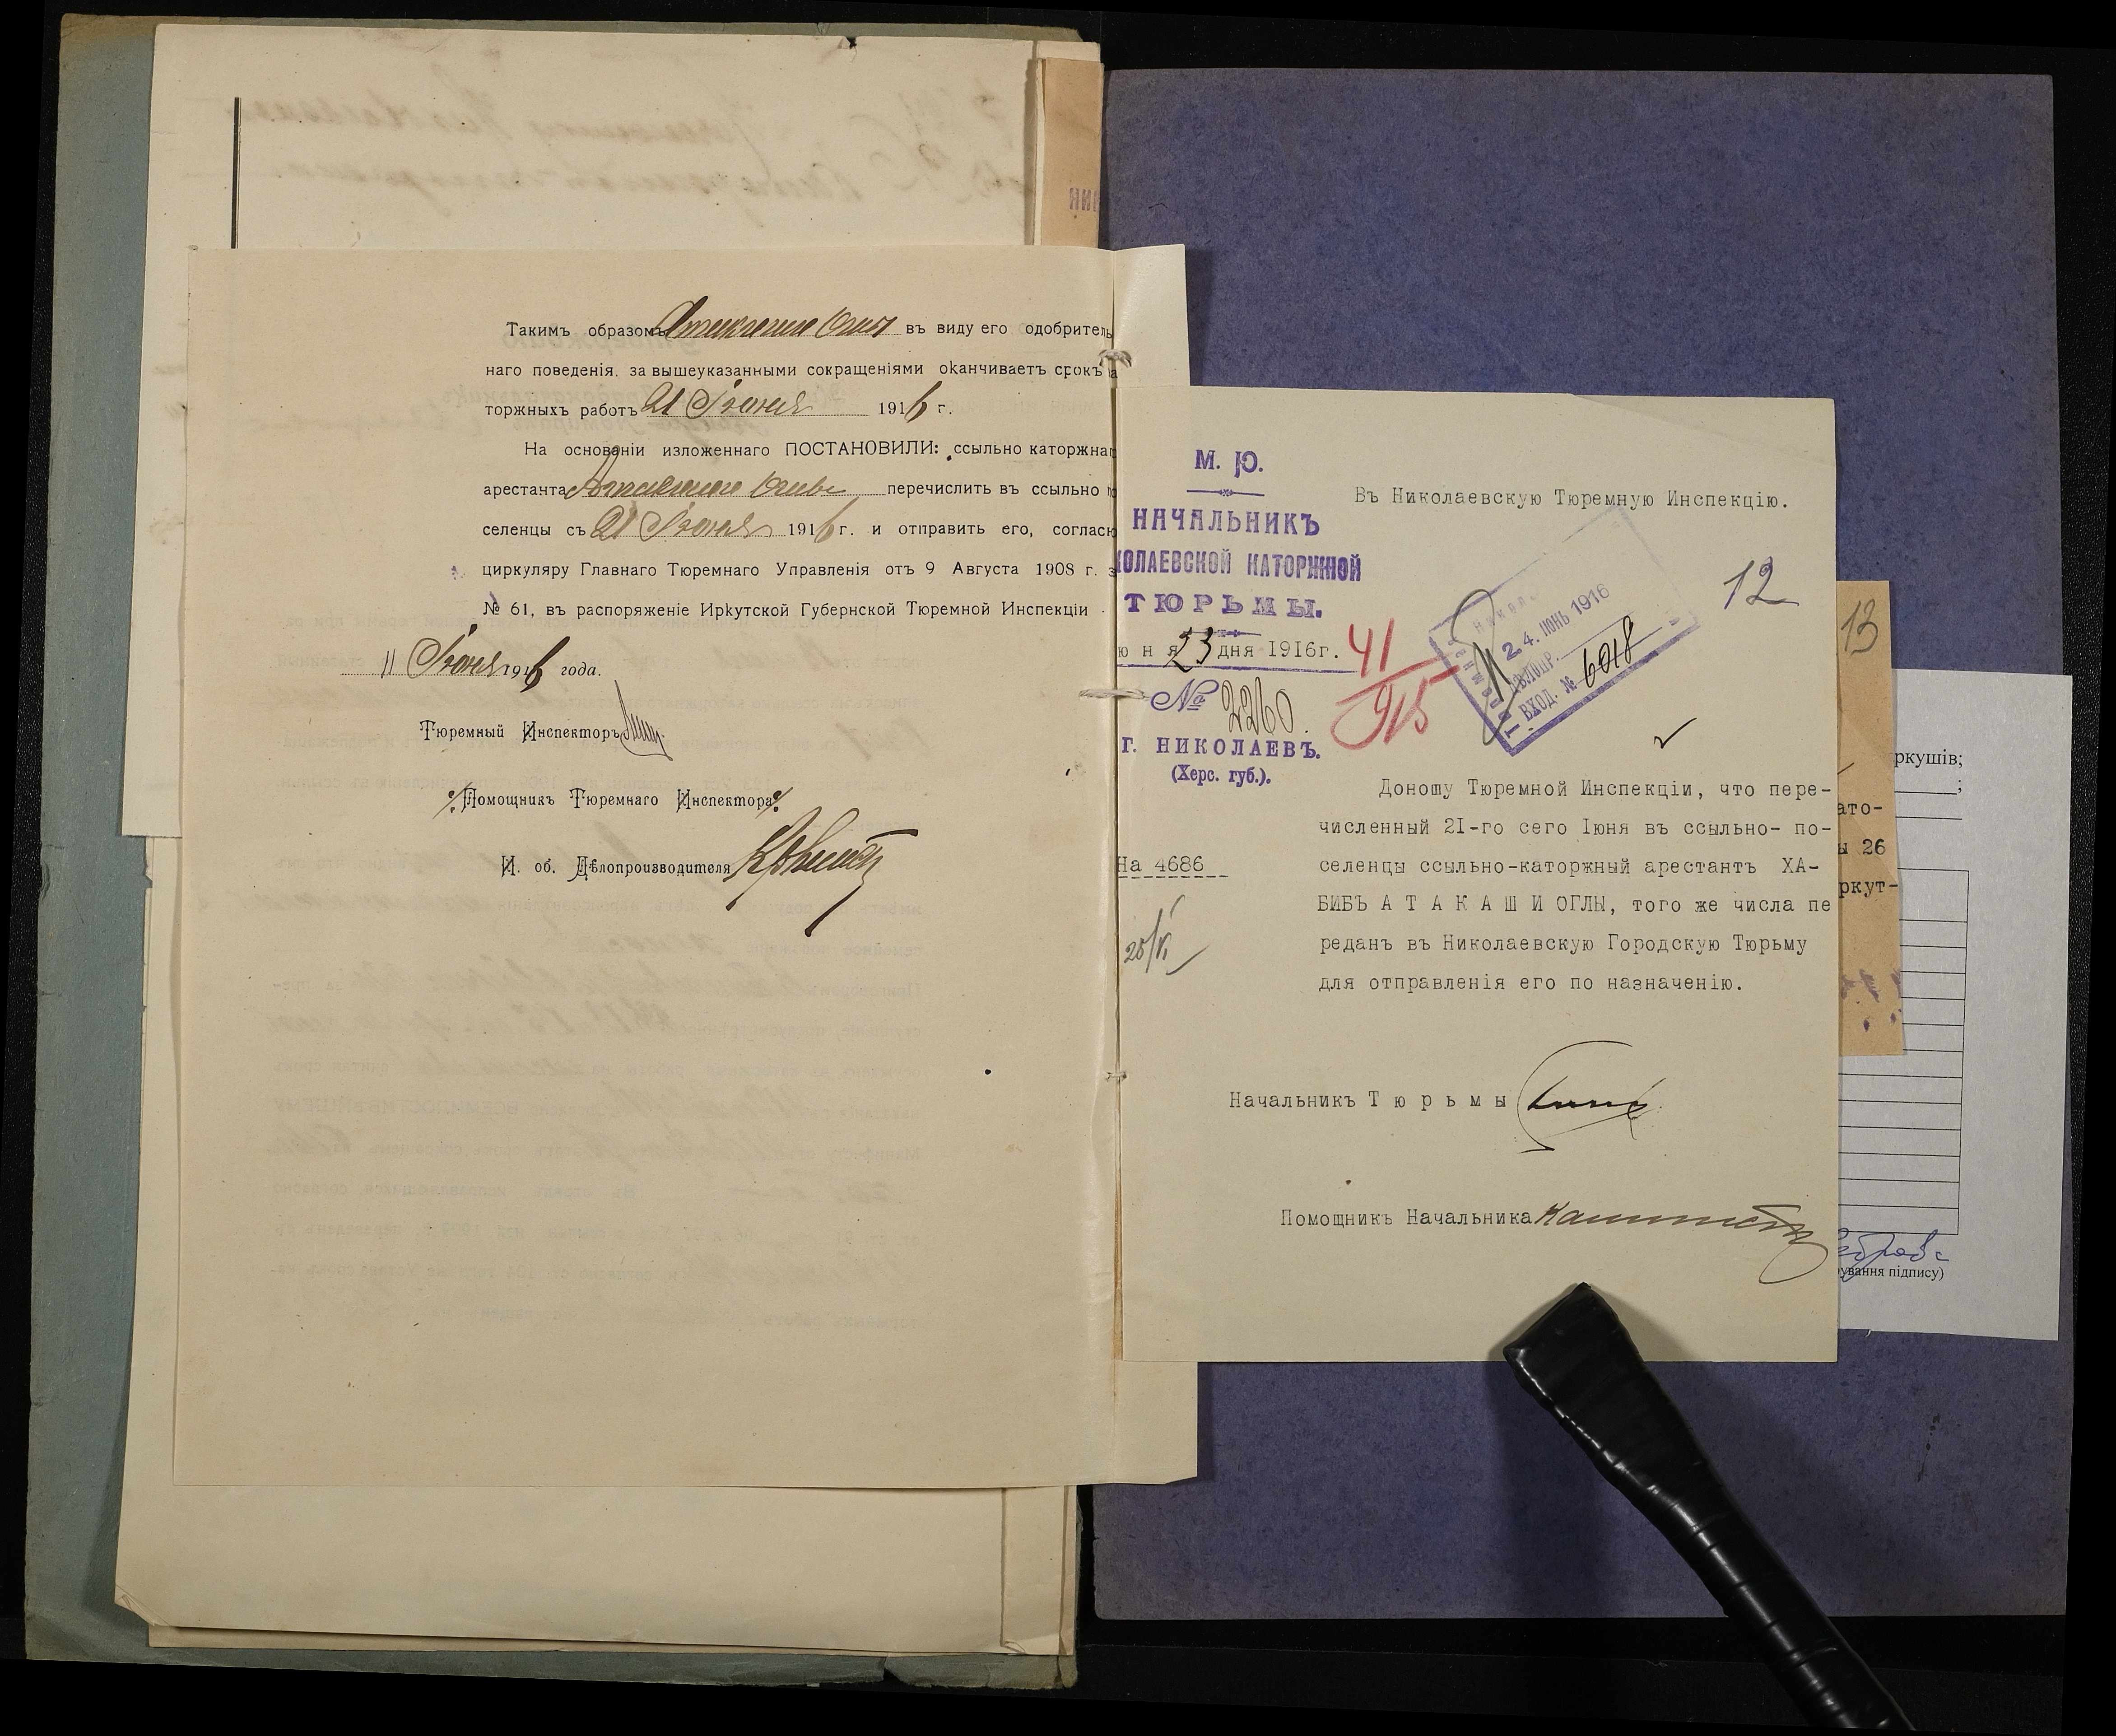 Такимъ образомъ Атакашие Оглы въ виду его одобритель
наго поведенія, за вышеуказанными сокращеніями оканчиваетъ срокъ
торжныхъ работъ 21 Іюня 1916 г.
На основаніи изложеннаго ПОСТАНОВИЛИ: ссыльно каторжнаг
арестанта Оглы перечислить въ ссыльно
селенцы съ 21 Іюня 1916 г. и отправить его, соглас
циркуляру Главнаго Тюремнаго Управленія отъ 9 Августа 1908 г. з
№ 61, въ распоряженіе Иркутской Губернской Тюремной Инспекціи
11 Іюня 1916 года.
Тюремный Инспекторъ
Помощникъ Тюремнаго Инспектора
И. об. Дѣлопроизводителя
М. Ю.
НАЧАЛЬНИКЪ
КОЛАЕВСКОЙ КАТОРЖНОЙ
ТЮРЬМЫ.
юня 23 дня 1916г.
№ 2260
г. НИКОЛАЕВЪ.
(Херс. губ.).
41
915
На 4686
Въ Николаевскую Тюремную Инспекцію.
12
24. ІЮНЬ 1916
ВХОД. № 6018
Доношу Тюремной Инспекціи, что пере-
численный 21-го сего Іюня въ ссыльно- по-
селенцы ссыльно-каторжный арестантъ ХА-
БИБЪ А Т А К А Ш И ОГЛЫ, того же числа пе
реданъ въ Николаевскую Городскую Тюрьму
для отправленія его по назначенію.
Начальникъ Т ю р ь м ы
Помощникъ Начальника
13
ато-
ы 26
ркут-
ркушів;
ування підпису)